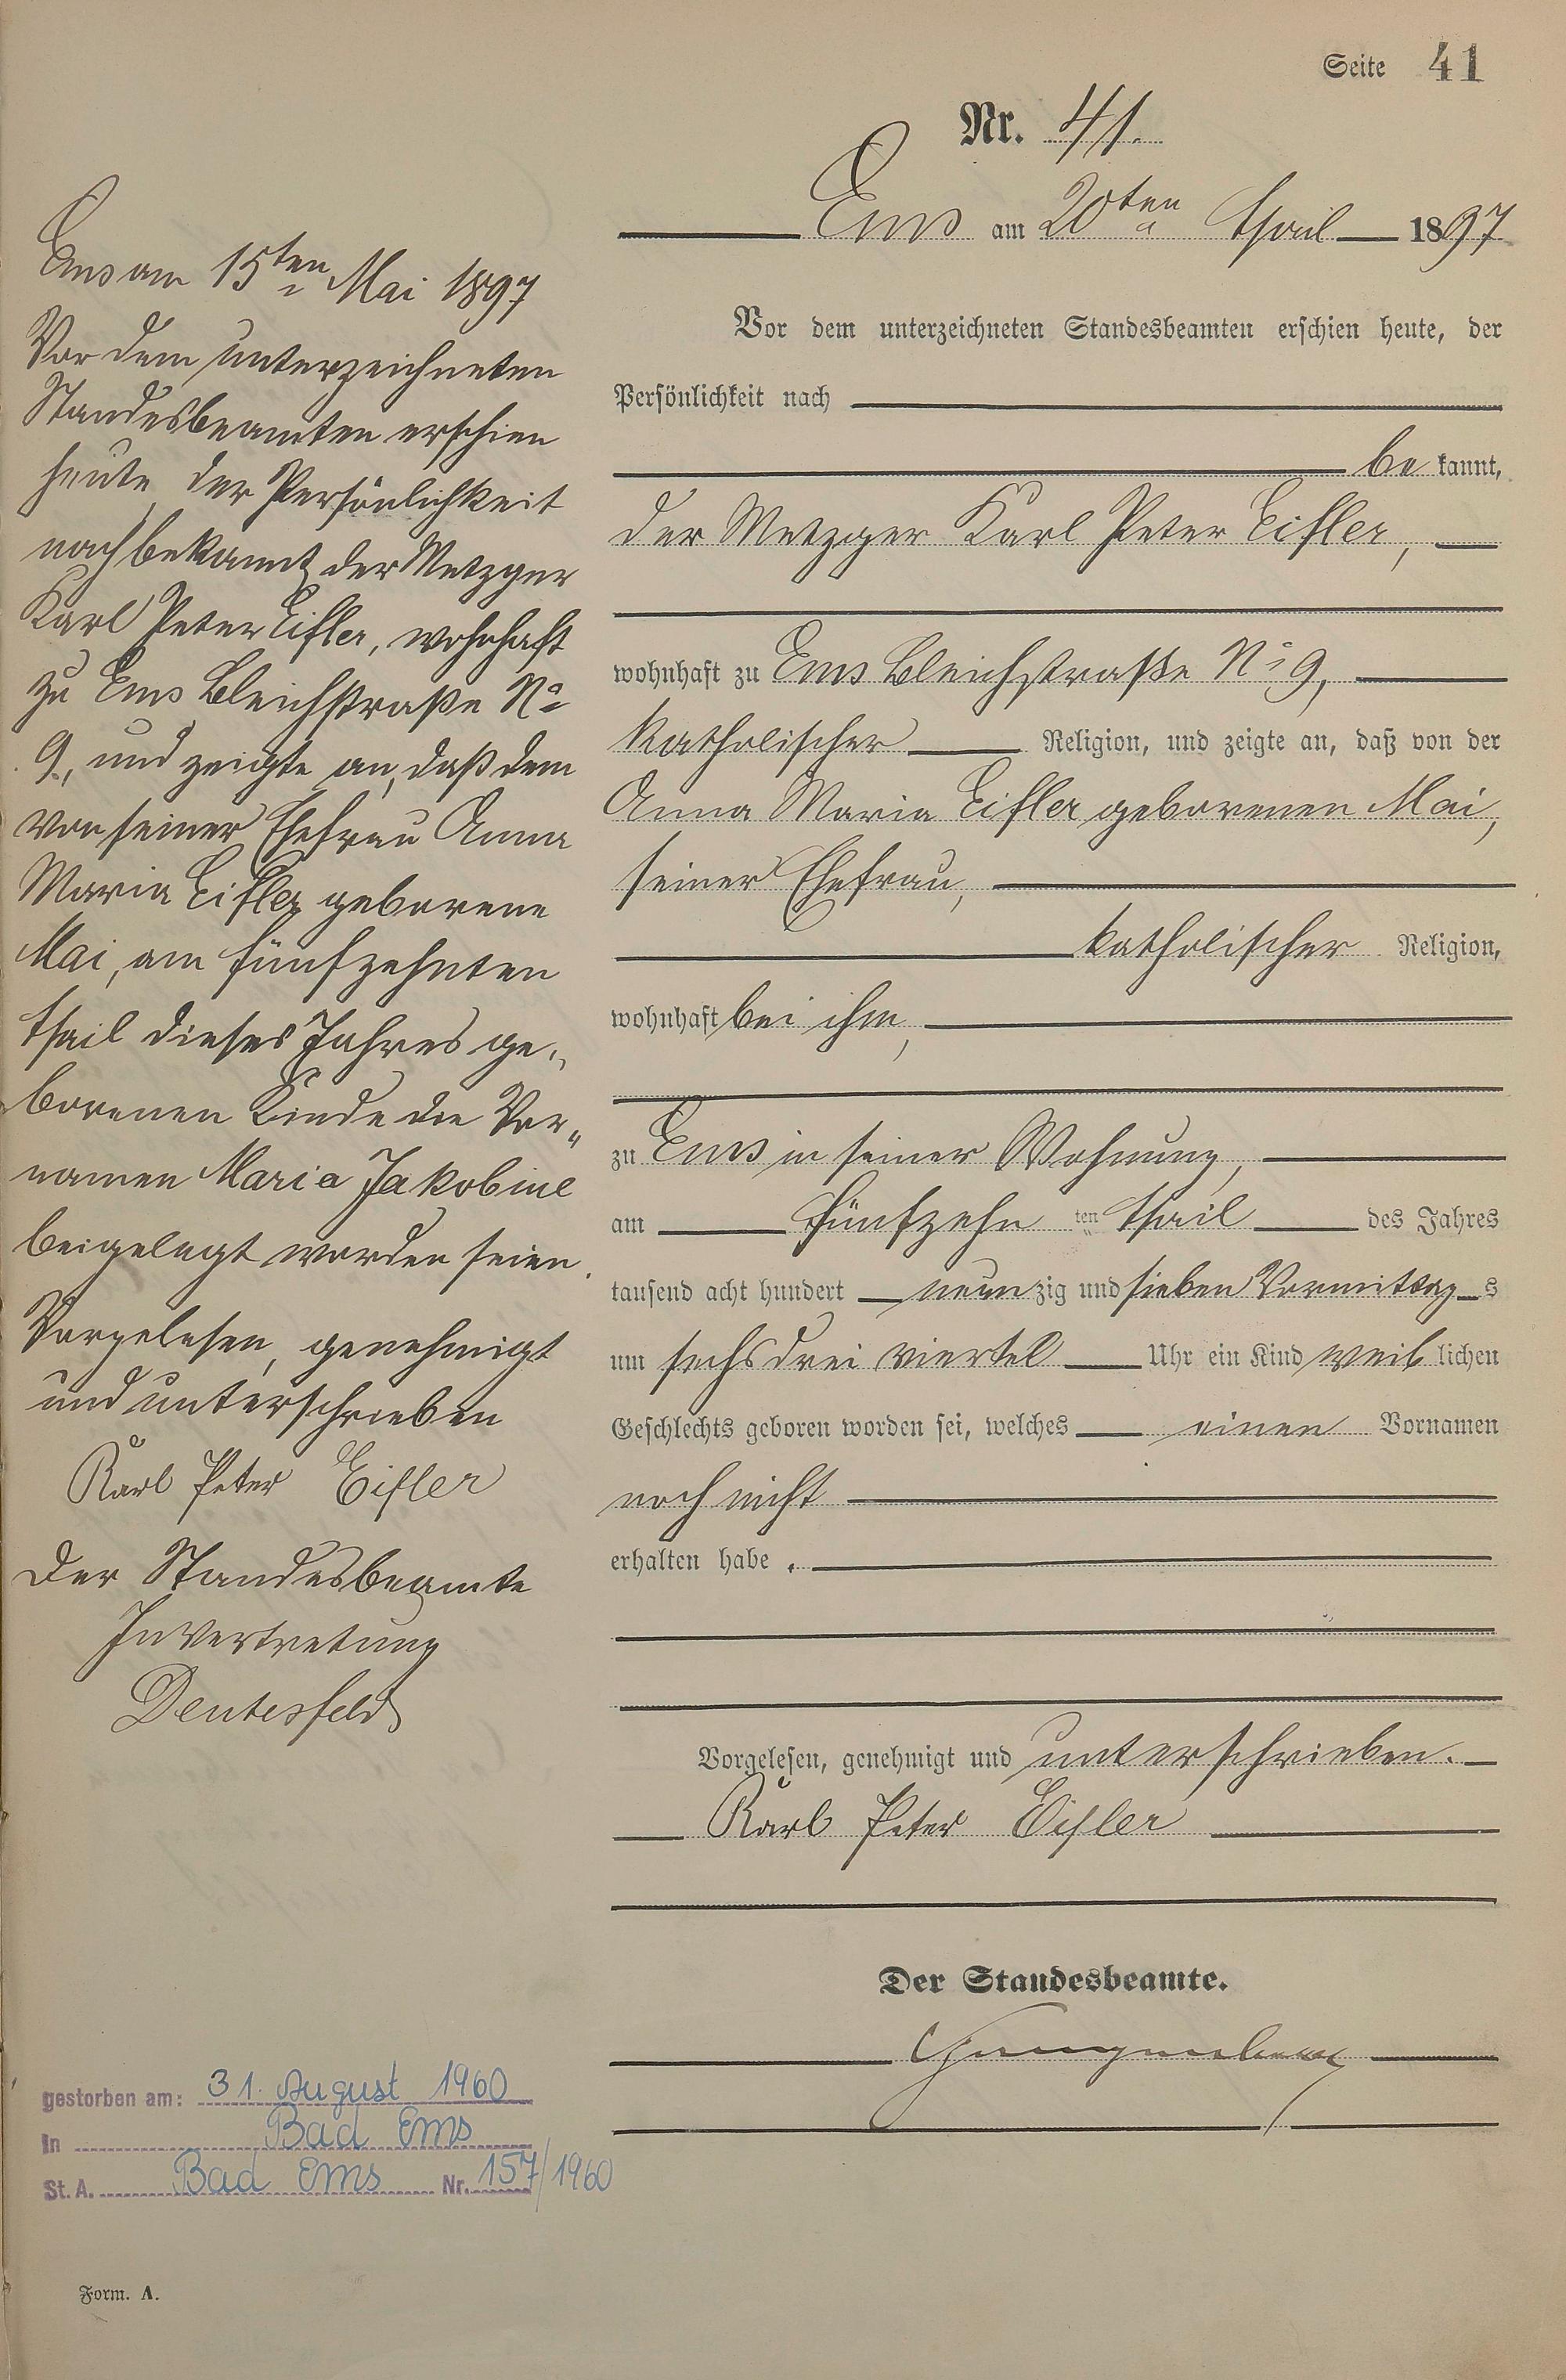 Seite 41
Nr. 41.
Ems am 20ten April 1897
Vor dem unterzeichneten Standesbeamten erschien heute, der
Persönlichkeit nach
be kannt,
der Metzger Karl Peter Eifler,
wohnhaft zu Ems Bleichstraße No 9,
katholischer Religion, und zeigte an, daß von der
Anna Maria Eifler geborenen Mai,
seiner Ehefrau,
katholischer Religion,
wohnhaft bei ihm,
zu Ems in seiner Wohnung,
am fünfzehn ten April des Jahres
tausend acht hundert neun zig und sieben Vormittag s
um sechs drei viertel Uhr ein Kind weib lichen
Geschlechts geboren worden sei, welches einen Vornamen
noch nicht
erhalten habe.
Vorgelesen, genehmigt und unterschrieben.
Karl Peter Eifler
Der Standesbeamte.
Ems am 15ten Mai 1897
Vor dem unterzeichneten
Standesbeamten erschien
heute, der Persönlichkeit
nach bekannt, der Metzger
Karl Peter Eifler, wohnhaft
zu Ems Bleichstraße No
9, und zeigte an, daß dem
von seiner Ehefrau Anna
Maria Eifler geborene
Mai, am fünfzehnten
April dieses Jahres ge„
borenen Kinde die Vor„
namen Maria Jakobine
beigelegt worden seien.
Vorgelesen, genehmigt
und unterschrieben
Karl Peter Eifler
Der Standesbeamte
In Vertretung
Deutesfeld
gestorben am: 31. August 1960
In Bad Ems
St. A. Bad Ems Nr. 157/1960
Form. A.